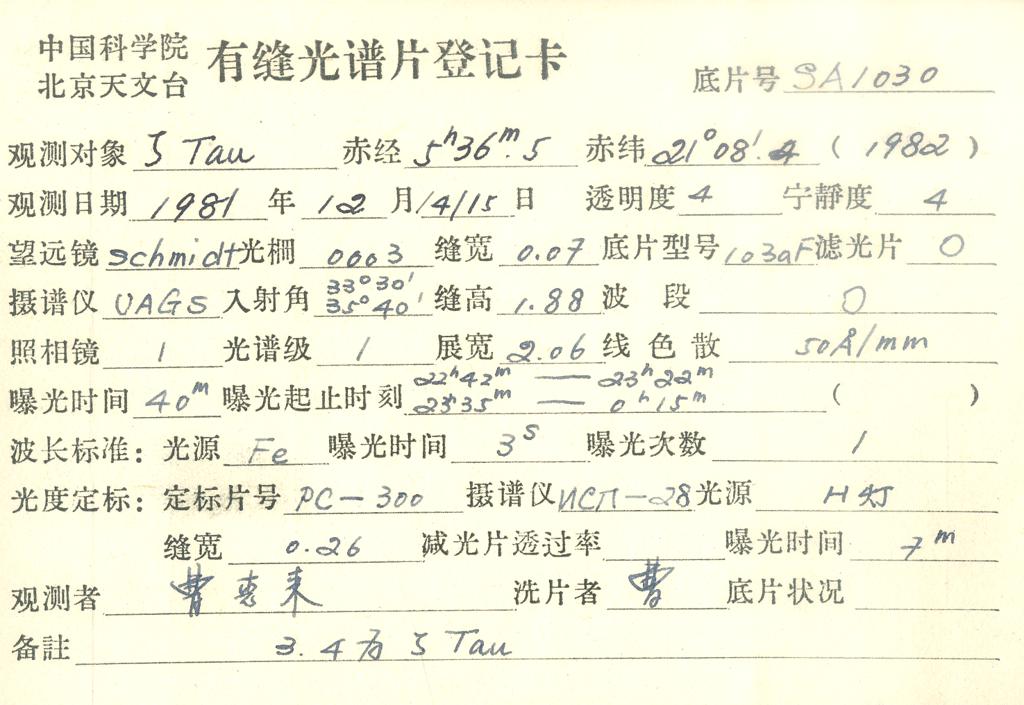 中国科学院
北京天文台 有缝光谱片登记卡 底片号 SA1030
观测对象 ζ Tau 赤经 5ʰ36ᵐ.5 赤纬 21°08′.4 (1982)
观测日期 1981 年 12 月 14/15 日 透明度 4 宁静度 4
望远镜 schmidt 光栅 0003 缝宽 0.07 底片型号 103aF 滤光片 0
摄谱仪 UAGS 入射角 33°30′ 35°40′ 缝高 1.88 波段 0
照相镜 1 光谱级 1 展宽 2.06 线色散 50Å/mm
曝光时间 40ᵐ 曝光起止时刻 22ʰ42ᵐ — 23ʰ22ᵐ 23ʰ35ᵐ — 0ʰ15ᵐ ( )
波长标准: 光源 Fe 曝光时间 3ˢ 曝光次数 1
光度定标: 定标片号 PC-300 摄谱仪 ИСП-28 光源 H灯
缝宽 0.26 减光片透过率 曝光时间 7ᵐ
观测者 曹惠来 洗片者 曹 底片状况
备註 3.4为 ζ Tau